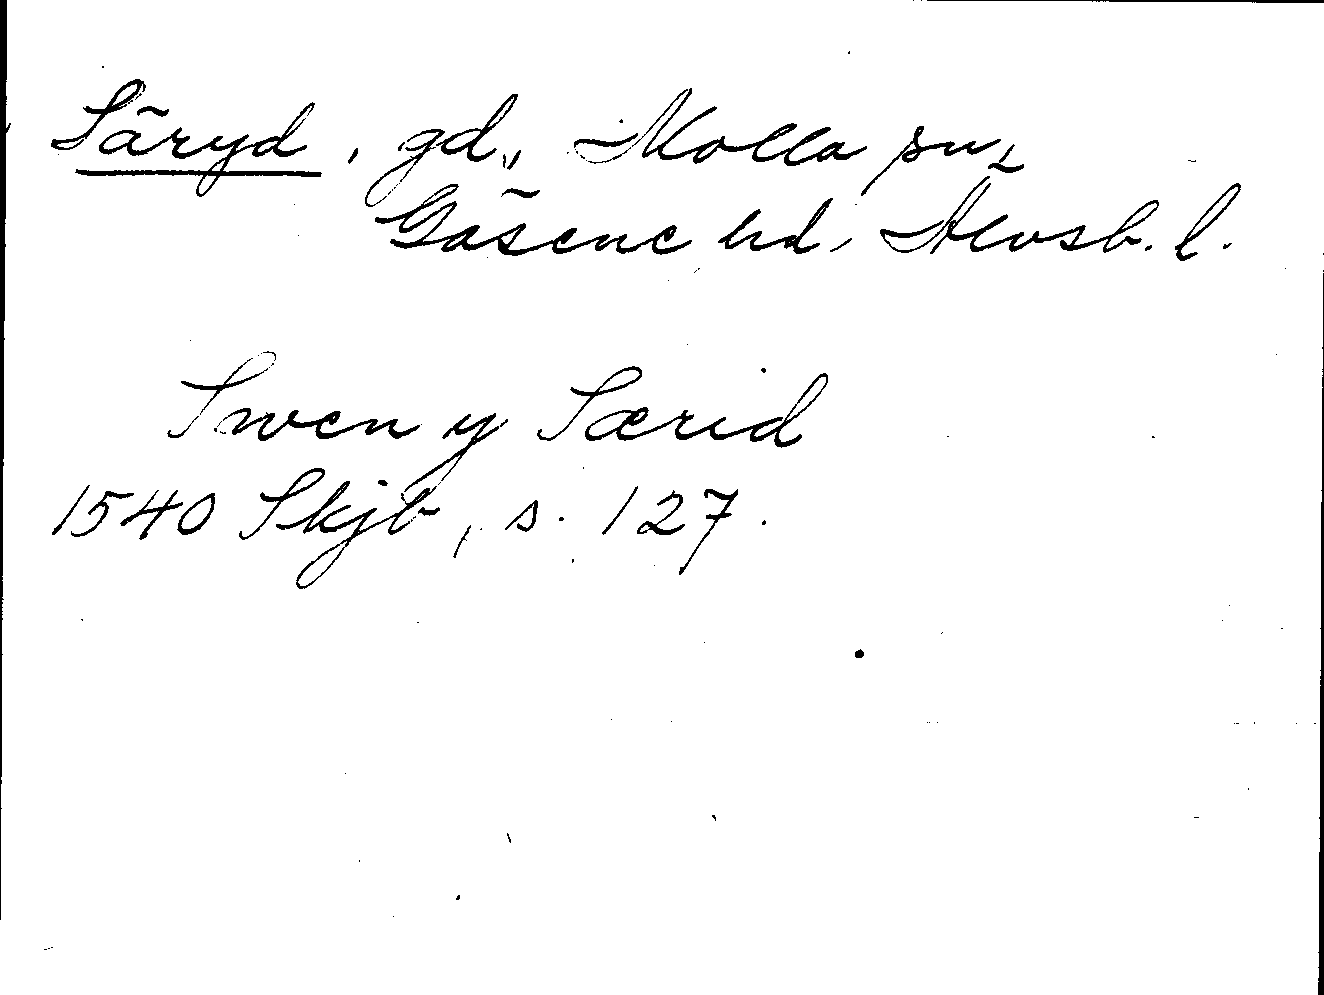 Säryd, gd., Molla sn,
Gäsene hd, Älvsb. l.
Swen y Særid
1540 Skjb, s. 127.